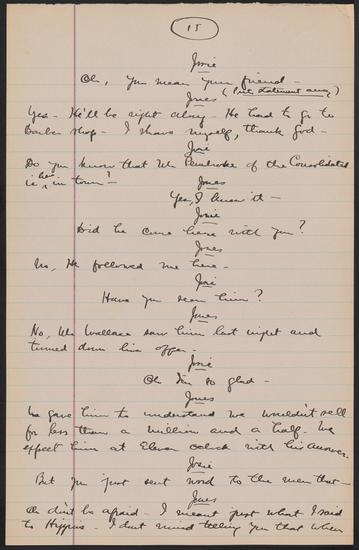 15
Josie
Oh, you mean your friend -
Jones (Puts statement away)
Yes - He'll be right along - He had to go to
Barber shop - I shave myself, thank God -
Josie
Do you know that Mr Pembroke of the Consolidated
is here in town? -
Jones
Yes, I knew it -
Josie
Did he come here with you?
Jones
No, He followed me here -
Josie
Have you seen him?
Jones
No, Mr Wallace saw him last night and
turned down his offer.
Josie
Oh I'm so glad -
Jones
We gave him to understand we wouldn't sell
for less than a million and a half. We
expect him at Eleven oclock with his answer.
Josie
But you just sent word to the men that -
Jones
Oh don't be afraid - I meant just what I said
to Higgins - I don't mind telling you that when